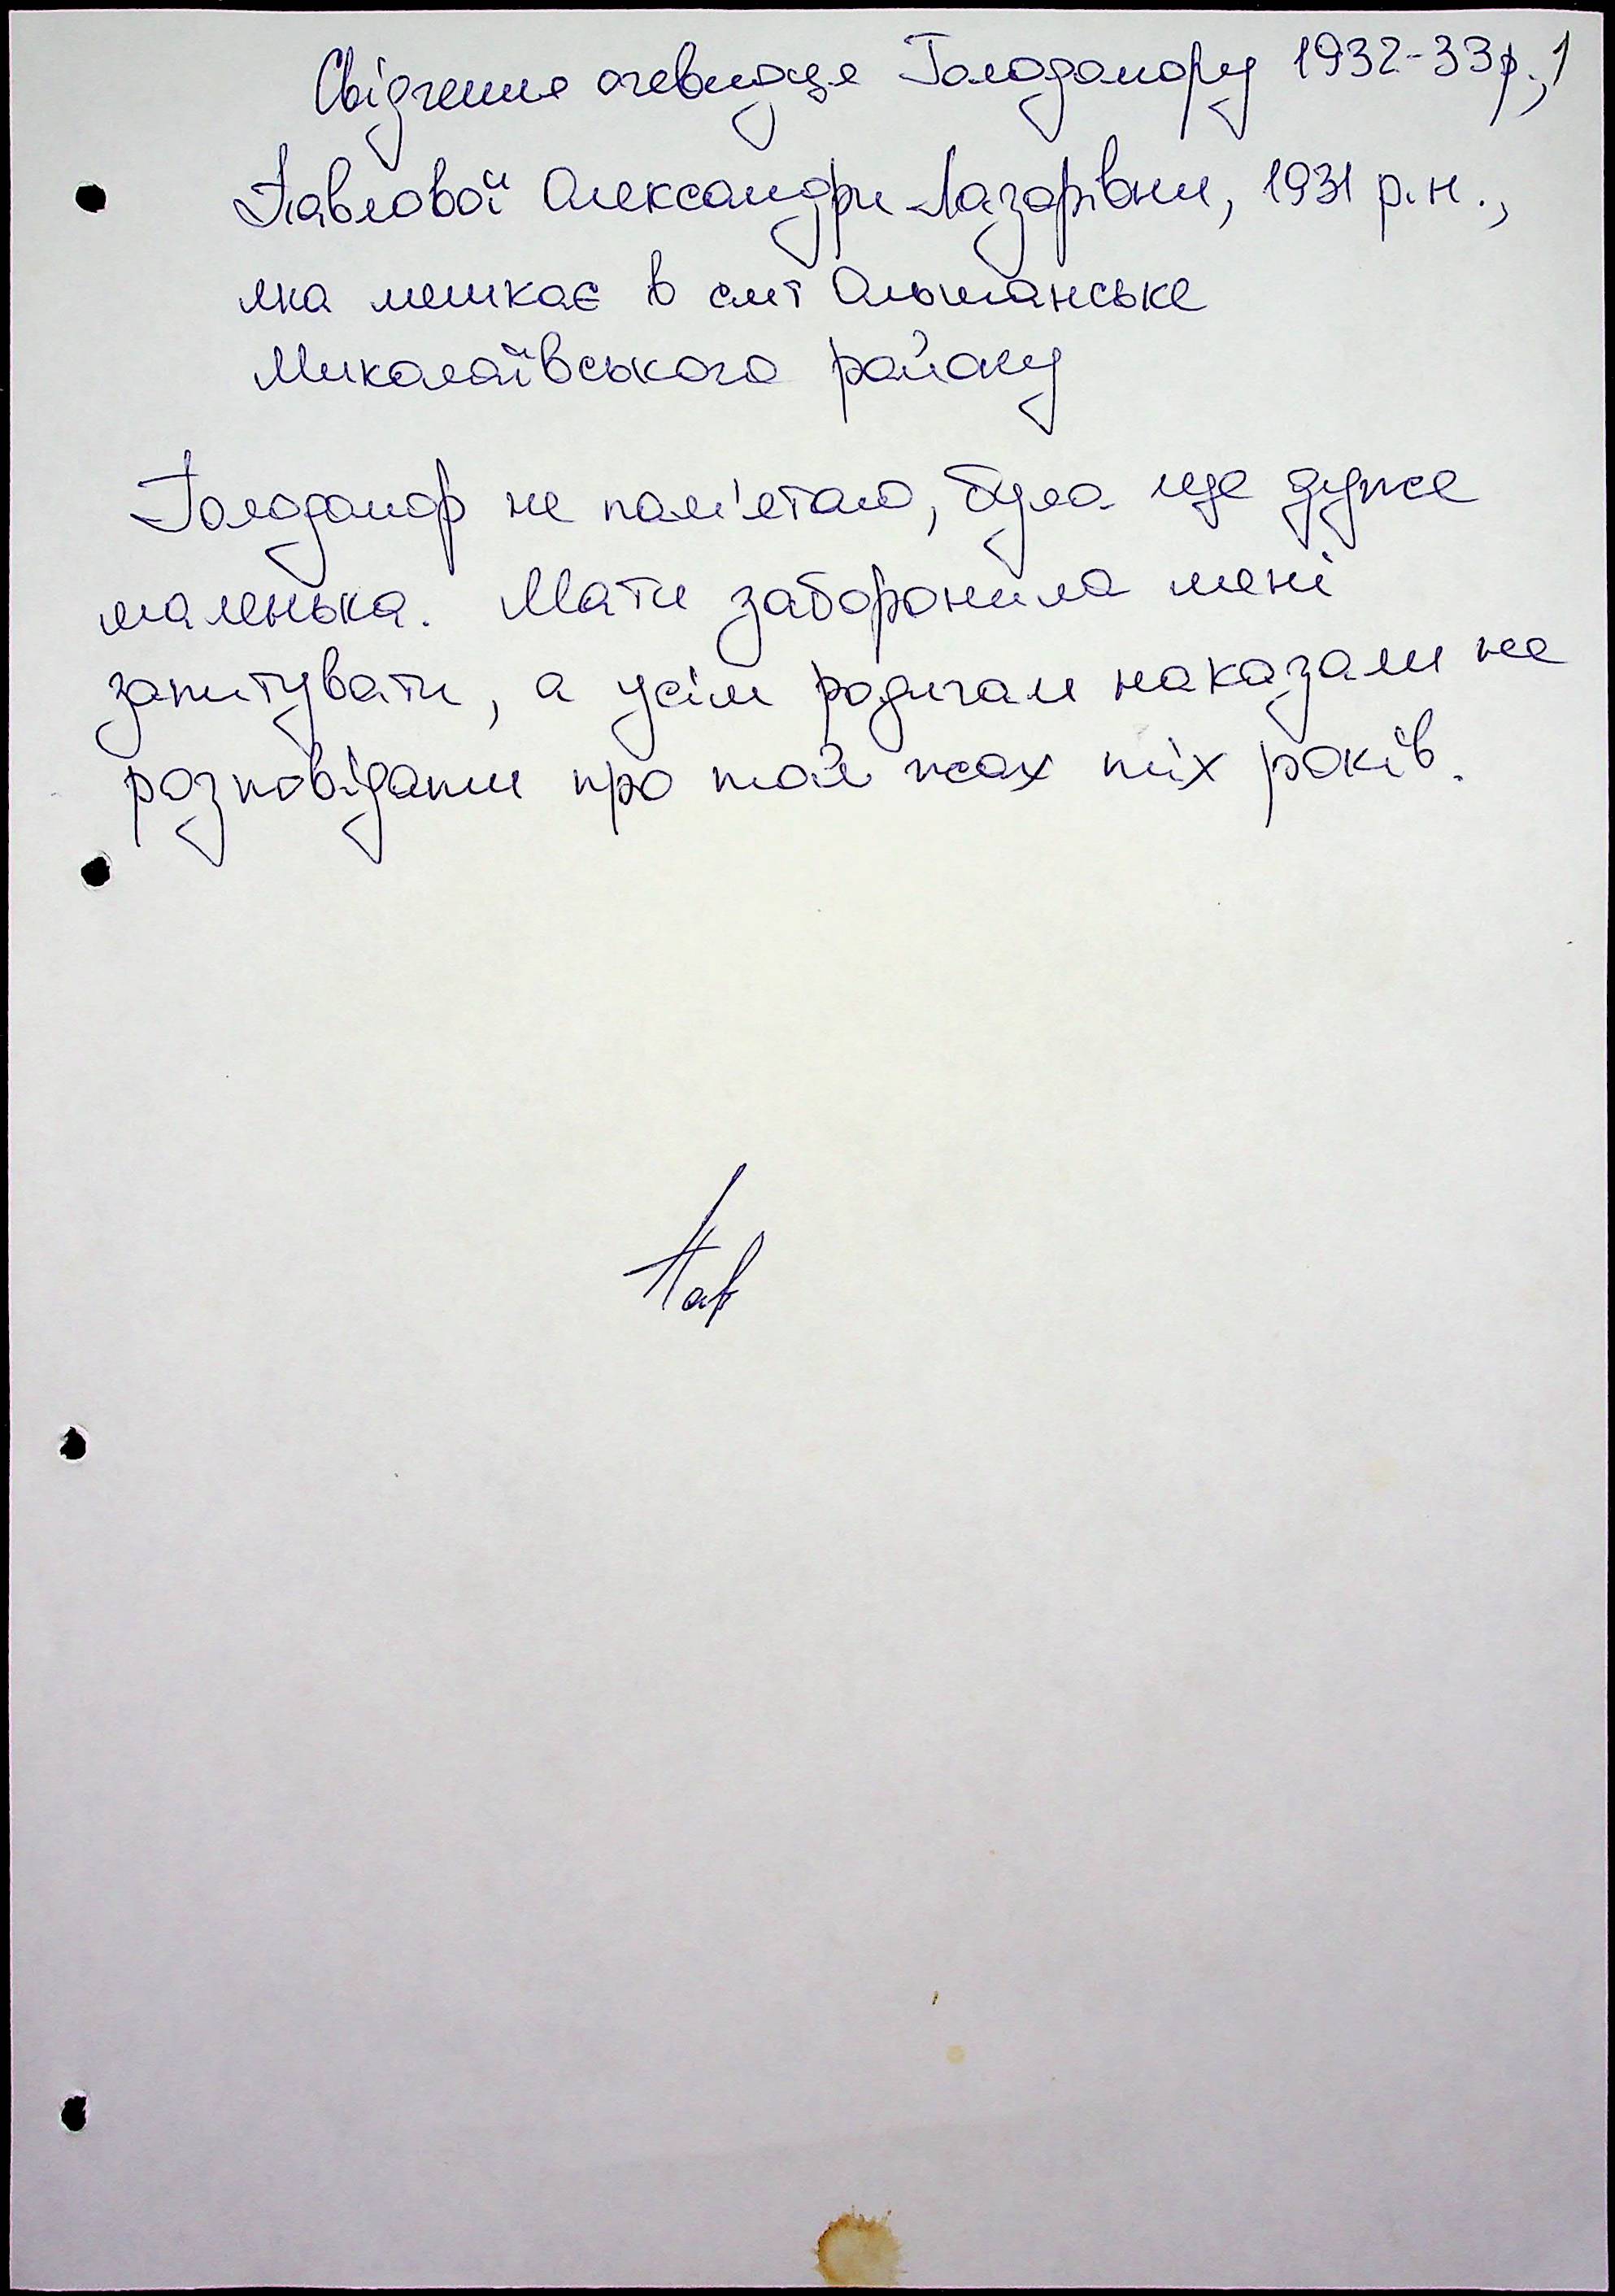 Свідчення очевидця Голодомору 1932-33р., 1
Павлової Олександри Лазарівни, 1931 р.н.,
яка мешкає в смт Ольшанське
Миколаївського району
Голодомор не пам'ятаю, була ще дуже
маленька. Мати заборонила мені
запитувати, а усім родичам наказали не
розповідати про той жах тіх років.
Пав